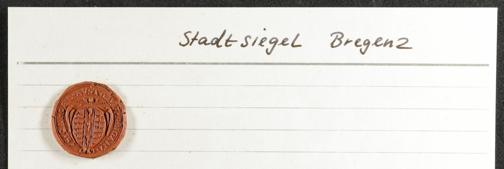 Stadtsiegel Bregenz